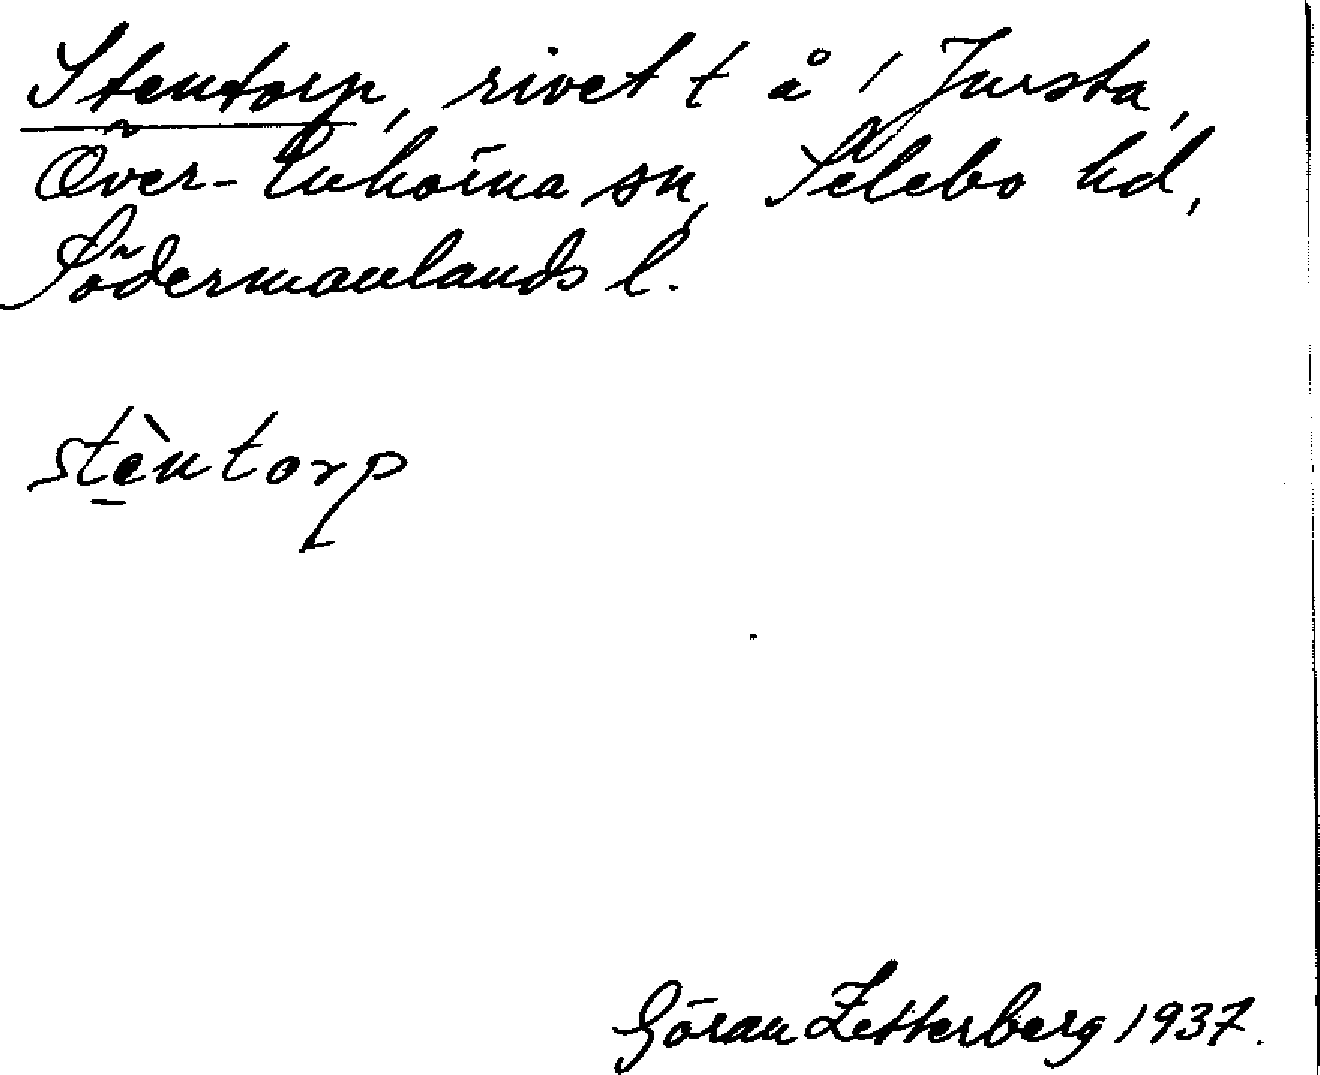 Stentorp, rivet t å 1 Jursta,
Över-Enhörna sn, Selebo hd,
Södermanlands l.
stèntorp
Göran Zetterberg 1937.